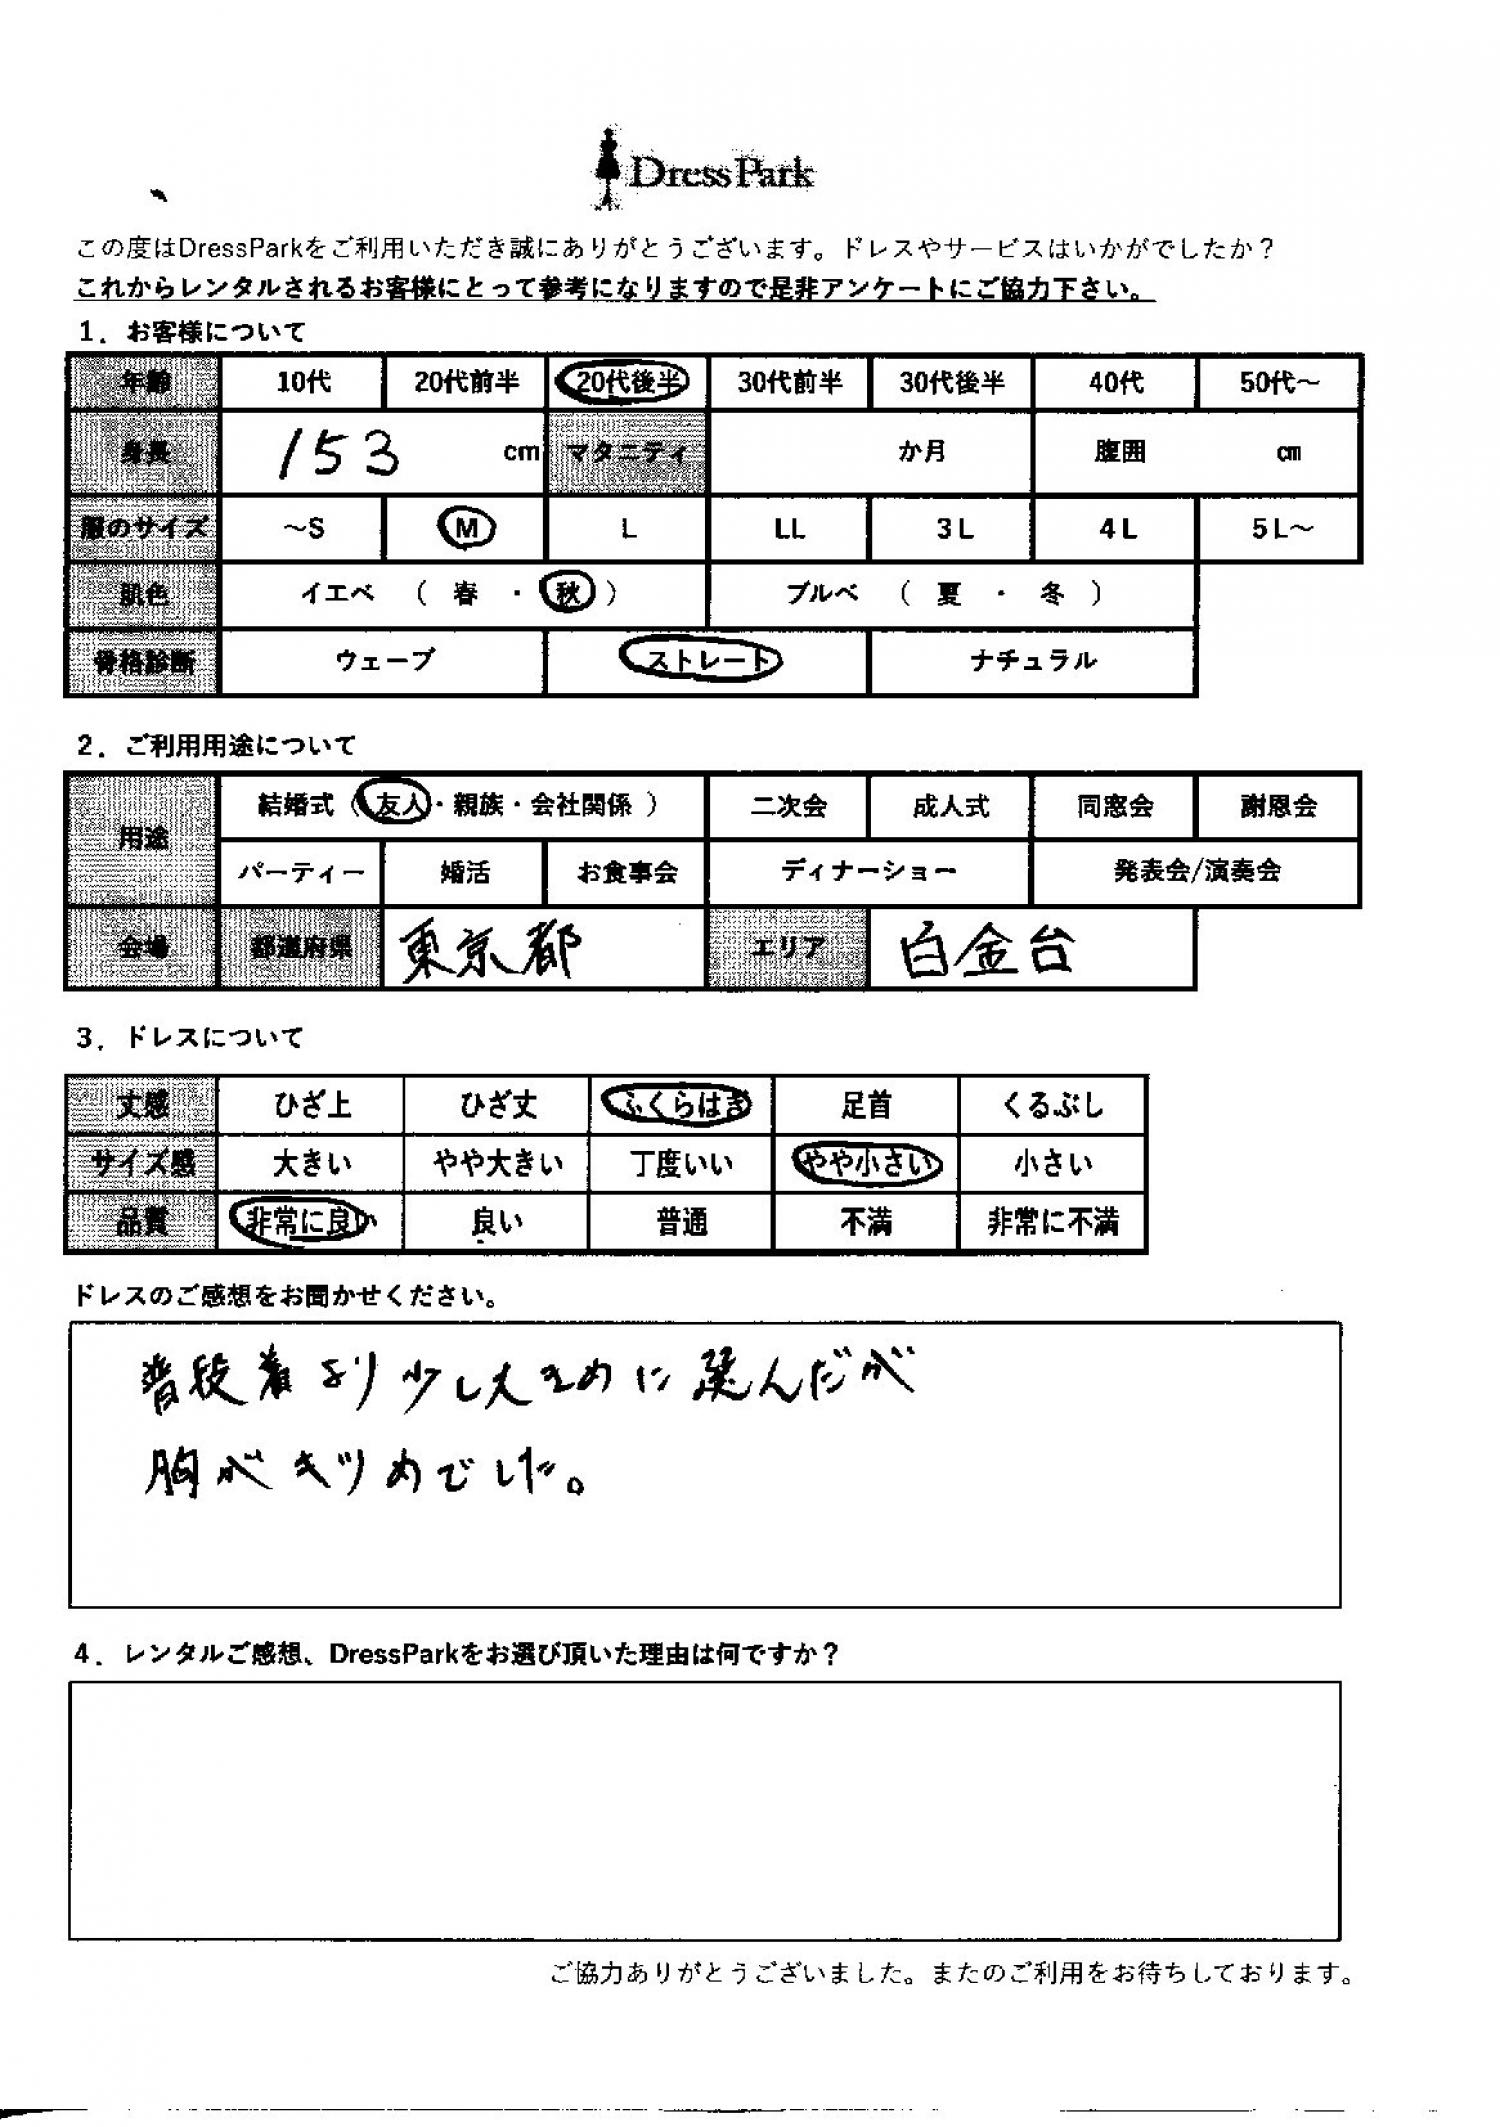 DressPark
この度はDressParkをご利用いただき誠にありがとうございます。ドレスやサービスはいかがでしたか？
これからレンタルされるお客様にとって参考になりますので是非アンケートにご協力下さい。
1．お客様について
年齢 10代 20代前半 20代後半 30代前半 30代後半 40代 50代～
身長 153 cm マタニティ か月 腹囲 cm
服のサイズ ～S M L LL 3L 4L 5L～
肌色 イエベ （ 春 ・ 秋 ） ブルベ （ 夏 ・ 冬 ）
骨格診断 ウェーブ ストレート ナチュラル
2．ご利用用途について
用途 結婚式（ 友人・親族・会社関係 ） 二次会 成人式 同窓会 謝恩会
パーティー 婚活 お食事会 ディナーショー 発表会/演奏会
会場 都道府県 東京都 エリア 白金台
3．ドレスについて
丈感 ひざ上 ひざ丈 ふくらはぎ 足首 くるぶし
サイズ感 大きい やや大きい 丁度いい やや小さい 小さい
品質 非常に良い 良い 普通 不満 非常に不満
ドレスのご感想をお聞かせください。
普段着より少し大きめに選んだが
胸がキツめでした。
4．レンタルご感想、DressParkをお選び頂いた理由は何ですか？
ご協力ありがとうございました。またのご利用をお待ちしております。